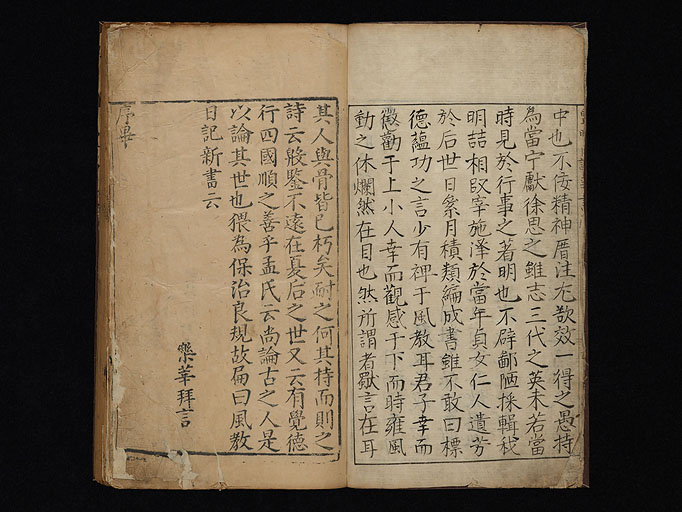 中也不佞精神厝注尤欲效一得之愚持
為當宁獻徐思之雖志三代之英未若當
時見於行事之著明也不辟鄙陋採輯我
明喆相馭宰施泽於當年貞女仁人遺芳
於后世日累月積類編成書雖不敢曰標
德蘊功之言少有裨于風教耳君子幸而
懲勸于上小人幸而觀感于下而時雍風
動之休爛然在目也然所謂者歇言在耳
其人與骨皆已朽矣耐之何其持而則之
詩云殷鑒不遠在夏后之世又云有覺德
行四國順之善乎孟氏云尚論古之人是
以論其世也猥為保治良規故扁曰風教
日記新書云
樂莘拜言
序畢